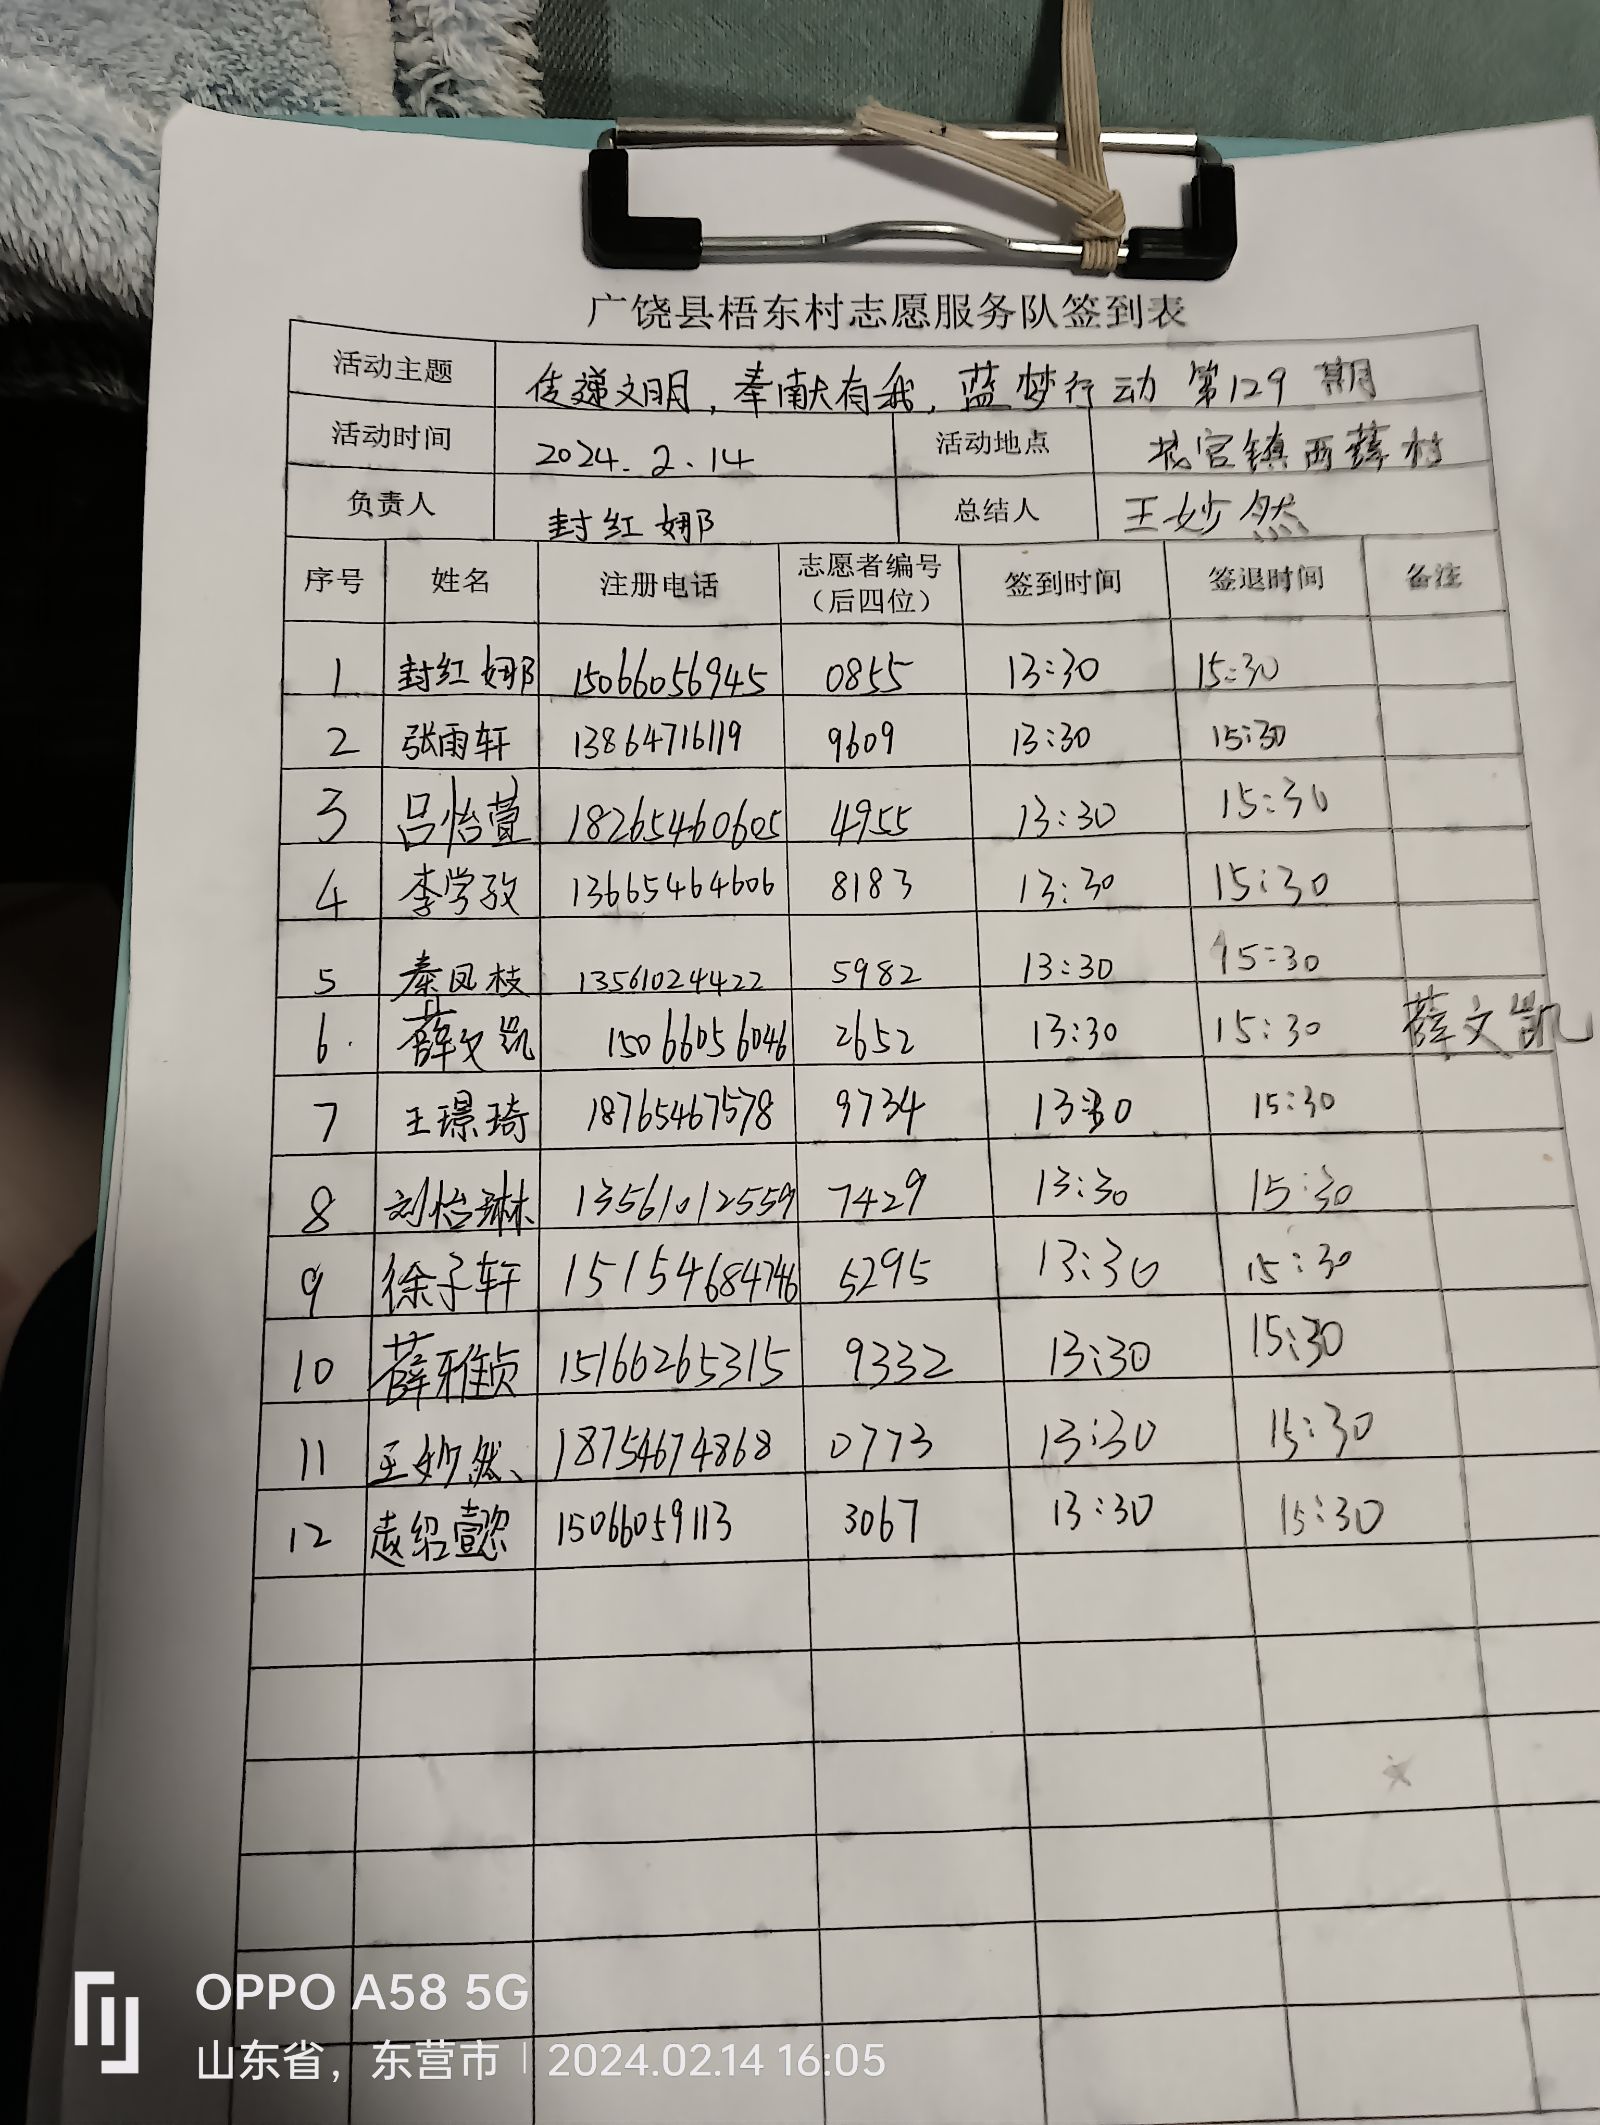 广饶县梧东村志愿服务队签到表
活动主题 传递文明，奉献有我，蓝梦行动 第129期
活动时间 2024.2.14 活动地点 花官镇西薛村
负责人 封红娜 总结人 王妙然
序号 姓名 注册电话 志愿者编号（后四位） 签到时间 签退时间 备注
1 封红娜 15066056945 0855 13:30 15:30
2 张雨轩 13864716119 9609 13:30 15:30
3 吕怡萱 18265460605 4955 13:30 15:30
4 李学孜 13665464606 8183 13:30 15:30
5 秦凤枝 13561024422 5982 13:30 15:30
6 薛文凯 15066056046 2652 13:30 15:30 薛文凯
7 王璟琦 18765467578 9734 13:30 15:30
8 刘怡琳 13561012559 7429 13:30 15:30
9 徐子轩 15154684746 5295 13:30 15:30
10 薛雅贞 15166265315 9332 13:30 15:30
11 王妙然、 18754674868 0773 13:30 15:30
12 赵绍懿 15066059113 3067 13:30 15:30
OPPO A58 5G
山东省，东营市 | 2024.02.14 16:05